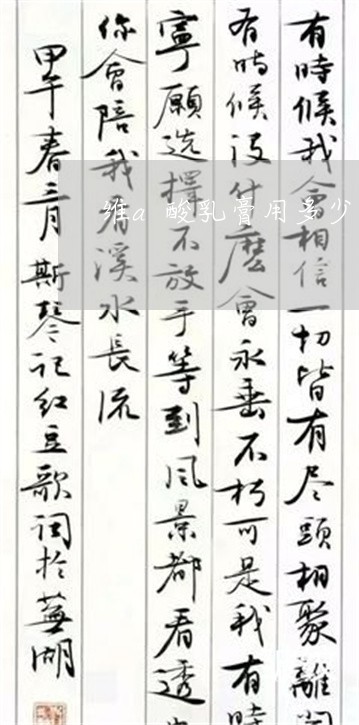 有時候我会相信一切皆有尽頭相聚離
有時候没什麽會永垂不朽可是我有時
寧願选擇不放手等到风景都看透
你會陪我看溪水長流
甲午春三月斯琴记红豆歌词於蕪湖
维a酸乳膏用多少